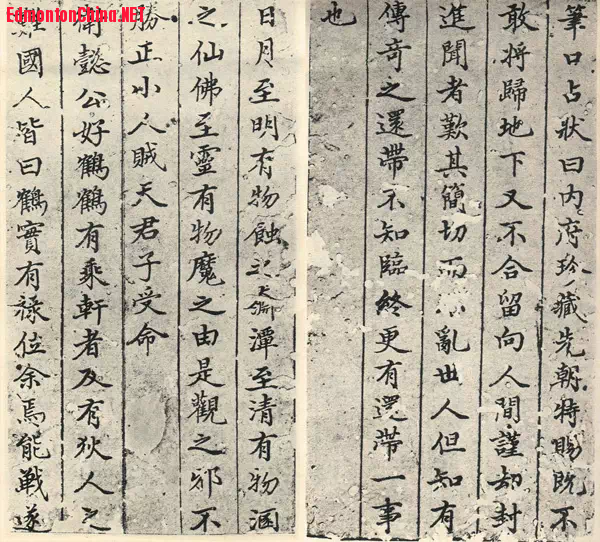 EdmontonChina.NET
筆口占狀曰內府珍藏先朝特賜既不
敢將歸地下又不合留向人間謹却封
進聞者歎其簡切而不亂世人但知有
傳奇之還帶不知臨終更有還帶一事
也
日月至明有物蝕之天
潭至清有物涸
之仙佛至靈有物魔之由是觀之邪不
勝正小人賊天君子受命
衛懿公好鶴鶴有乘軒者及有狄人之
難國人皆曰鶴實有祿位余焉能戰遂